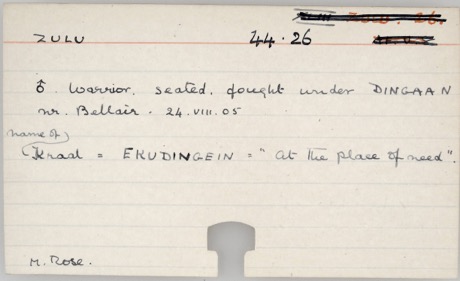 ZULU. 26.
ZULU 44.26
♂ Warrior, seated, fought under DINGAAN
nr. Bellair. 24.VIII.05
name of
Kraal = EKUDINGEIN = "At the place of need".
M. Rose.